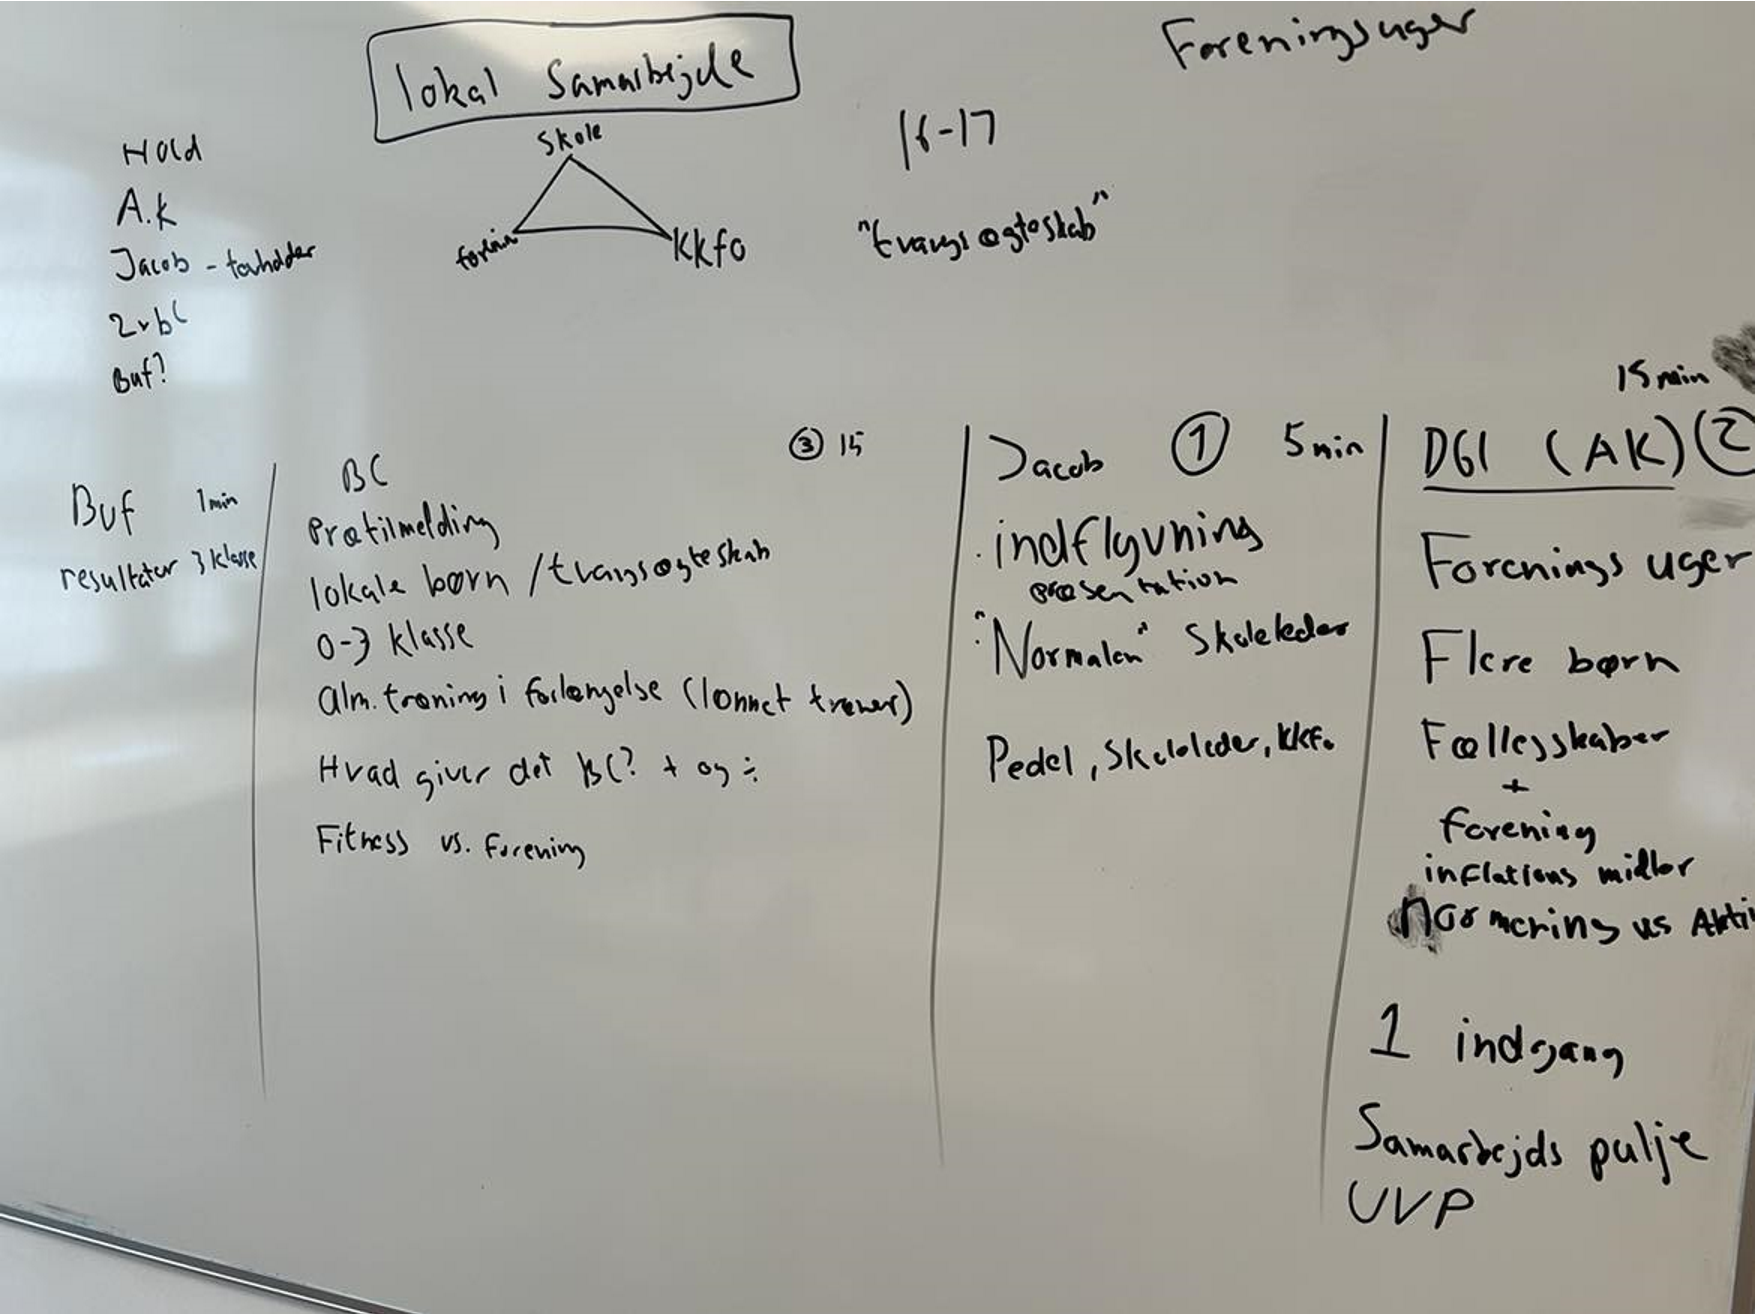 Foreningsuger
lokal Samarbejde
Skole
KKfo
16-17
"tvangsægteskab"
Hold
A.K
Jacob -
2x bC
Buf?
Buf 1 min
resultater 3 klasse
③ 15
BC
Prøtilmelding
lokale børn / tvangsægteskab
0-3 klasse
Alm. træning i forlængelse (lønnet træner)
Hvad giver det BC? + og ÷
Fitness vs. Forening
Jacob ① 5 min
. indflyvning
præsentation
: "Normalen" Skoleleder
Pedel, Skoleleder, KKfo
15 min
DGI (AK) ②
Forenings uger
Flere børn
Fællesskaber
+
forening
inflations midler
Normering vs Akti
1 indgang
Samarbejds pulje
UVP